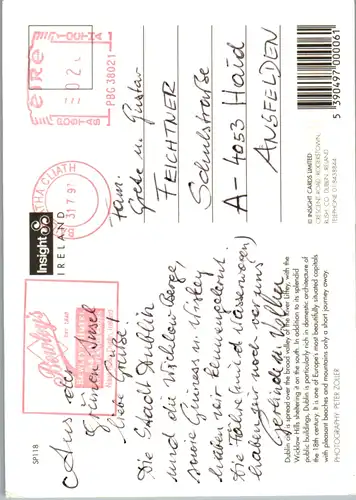 SP118
Bewley's
EST. 1840
Insight
IRELAND
ÁTHA CLIATH
31.7.9
EIRE
POSTAS
PBG 38021
Aus der
Grünen Insel
liebe Grüße!
Die Stadt Dublin
und die Wicklow Berge,
sowie Guiness u. Whisky
haben wir kennengelernt.
Die Fähre und
haben wir noch vor uns
Fam.
Grete u. Gustav
FEICHTNER
Schulstraße
A-4053 Haid
ANSFELDEN
Dublin city is spread over the broad valley of the River Liffey, with the
Wicklow Hills sheltering it on the south. In addition to its splendid
public buildings, Dublin is particularly rich in domestic architecture of
the 18th century. It is one of Europe's most beautifully situated capitals
with pleasant beaches and mountains only a short journey away.
PHOTOGRAPHY: PETER ZÖLLER
© INSIGHT CARDS LIMITED
CRESCENT ROAD, ROGERSTOWN,
RUSH, CO. DUBLIN, IRELAND
TELEPHONE 01-8438844
5 390497 000061